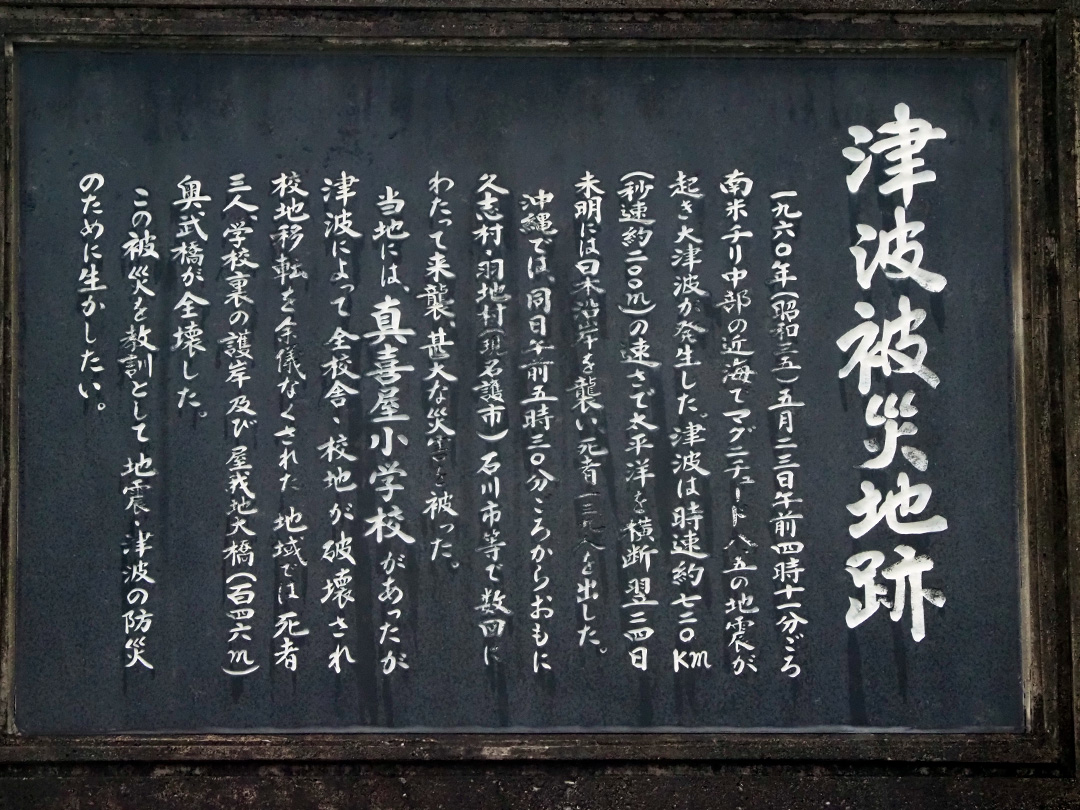 津波被災地跡
一九六〇年(昭和三五)五月二三日午前四時十一分ごろ
南米チリ中部の近海でマグニチュード八・五の地震が
起き大津波が発生した。津波は時速約七二〇Km
(秒速約二〇〇m)の速さで太平洋を横断翌二四日
未明には日本沿岸を襲い、死者一三九人を出した。
沖縄では、同日午前五時三〇分ごろからおもに
久志村・羽地村(現名護市)石川市等で数回に
わたって来襲、甚大な災害を被った。
当地には、真喜屋小学校があったが
津波によって全校舎・校地が破壊され
校地移転を余儀なくされた地域では死者
三人、学校裏の護岸及び屋我地大橋(百四六m)
奥武橋が全壊した。
この被災を教訓として地震・津波の防災
のために生かしたい。